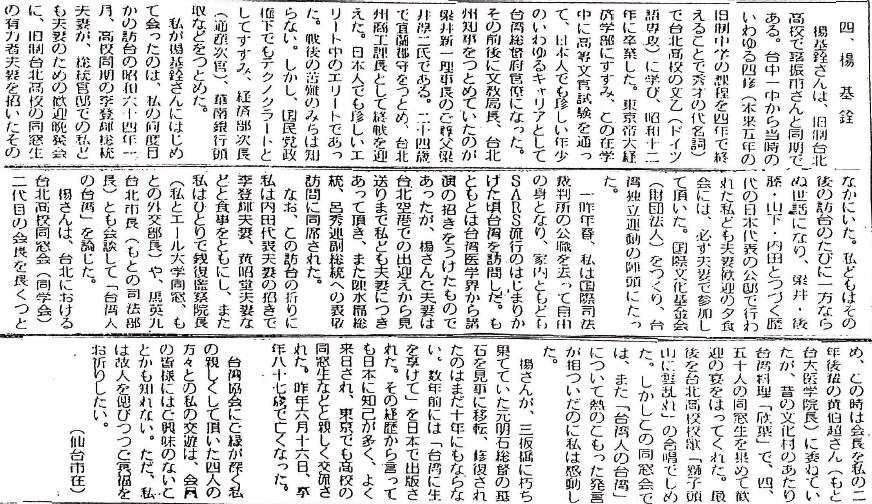 四、楊 基 銓
楊基銓さんは、旧制台北
高校で辜振甫さんと同期で
ある。台中一中から当時の
いわゆる四修（本来五年の
旧制中学の課程を四年で終
えることで秀才の代名詞）
で台北高校の文乙（ドイツ
語専攻）に学び、昭和十二
年に卒業した。東京帝大経
済学部にすすみ、この在学
中に高等文官試験を通っ
て、日本人でも珍しい年少
のいわゆるキャリアとして
台湾総督府官僚になった。
その前後に文教局長、台北
州知事をつとめていたのが
梁井新一理事長のご尊父梁
井淳二氏である。二十四歳
で宜蘭郡守をつとめ、台北
州商工課長として終戦を迎
えた。日本人でも珍しいエ
リート中のエリートであっ
た。戦後の苦難のみちは知
らない。しかし、国民党政
権下でもテクノクラートと
してすすみ、経済部次長
（通商次官）、華南銀行頭
取などをつとめた。
私が楊基銓さんにはじめ
て会ったのは、私の何度目
かの訪台の昭和六十四年一
月、高校同期の李登輝総統
夫妻が、総統官邸での私ど
も夫妻のための歓迎晩餐会
に、旧制台北高校の同窓生
の有力者夫妻を招いたその
なかにいた。私どもはその
後の訪台のたびに一方なら
ぬ世話になり、梁井・後
藤・山下・内田とつづく歴
代の日本代表の公邸で行わ
れた私ども夫妻歓迎の夕食
会には、必ず夫妻で参加し
て頂いた。国際文化基金会
（財団法人）をつくり、台
湾独立運動の陣頭にたっ
た。
一昨年春、私は国際司法
裁判所の公職を去って自由
の身となり、家内ともども
SARS流行のはじまりか
けた頃台湾を訪問した。も
ともとは台湾医学界から講
演の招きをうけたもので
あったが、楊さんご夫妻は
台北空港での出迎えから見
送りまで私ども夫妻につき
あって頂き、また陳水扁総
統、呂秀連副総統への表敬
訪問に同席された。
なお、この訪台の折りに
私は内田代表夫妻の招きで
李登輝夫妻、黄昭堂夫妻な
どと食事をともにし、また
私はひとりで銭復監察院長
（私とエール大学同窓、も
との外交部長）や、馬英九
台北市長（もとの司法部
長）とも会談して「台湾人
の台湾」を論じた。
楊さんは、台北における
台北高校同窓会（同学会）
二代目の会長を長くつと
め、この時は会長を私の二
年後輩の黄伯超さん（もと
台大医学院長）に委ねてい
たが、昔の文化村のあたり
台湾料理「欣葉」で、四、
五十人の同窓生を集めて歓
迎の宴をはってくれた。最
後を台北高校校歌「獅子頭
山に雲乱れ」の合唱でしめ
た。しかしこの同窓会で
は、また「台湾人の台湾」
について熱のこもった発言
が相ついだのに私は感動し
た。
楊さんが、三板橋に朽ち
果てていた元明石総督の墓
石を見事に移転、修復され
たのはまだ十年にもならな
い、数年前には「台湾に生
を享けて」を日本で出版さ
れた。その経歴から言って
も日本に知己が多く、よく
来日され、東京でも高校の
同窓生などと親しく交流さ
れた。昨年六月十六日、享
年八十七歳で亡くなった。
台湾協会にご縁が深く私
の親しくして頂いた四人の
方々との私の交遊は、会員
の皆様にはご興味のないこ
とかも知れない。ただ、私
は故人を偲びつつご冥福を
お祈りしたい。
（仙台市在）